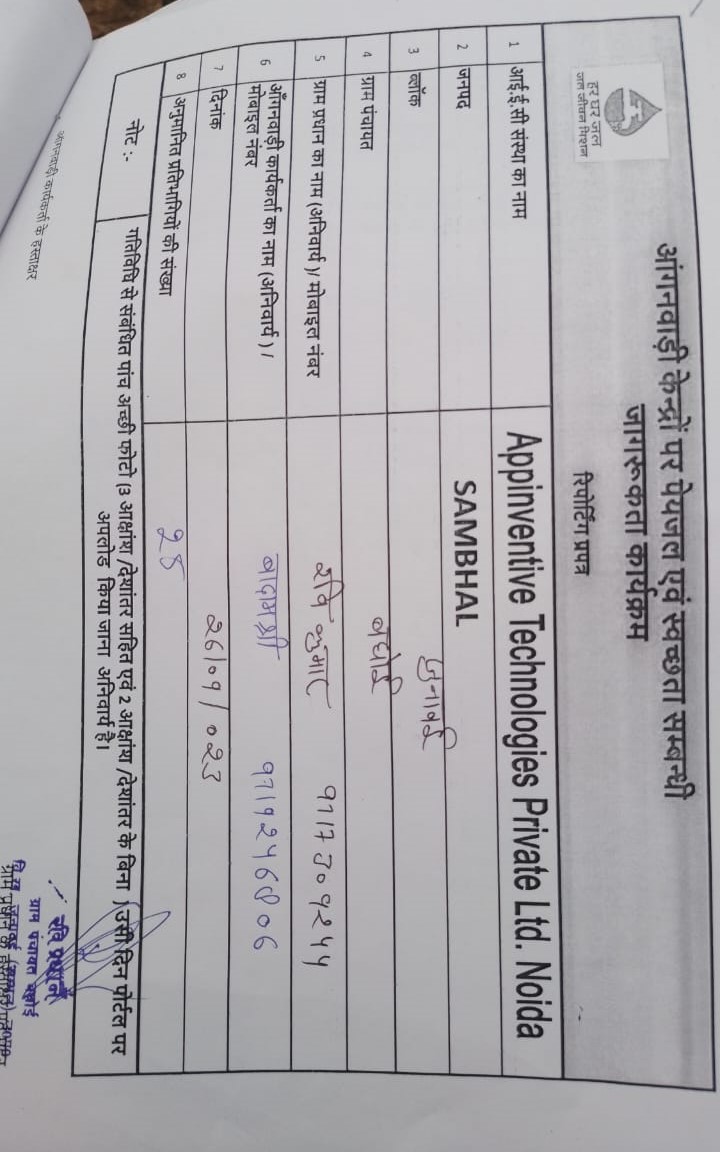 हर घर जल
जल जीवन मिशन
आंगनवाड़ी केन्द्रों पर पेयजल एवं स्वच्छता सम्बन्धी
जागरूकता कार्यक्रम
रिपोर्टिंग प्रपत्र
1 आई.ई.सी संस्था का नाम Appinventive Technologies Private Ltd. Noida
2 जनपद SAMBHAL
3 ब्लॉक जुनावई
4 ग्राम पंचायत बघोई
5 ग्राम प्रधान का नाम (अनिवार्य )/ मोबाइल नंबर रवि कुमार
6 आँगनवाड़ी कार्यकर्ता का नाम (अनिवार्य ) / बादामश्री
मोबाइल नंबर
7 दिनांक
8 अनुमानित प्रतिभागियों की संख्या
नोट :- गतिविधि से संबंधित पांच अच्छी फोटो (3 आक्षांश /देशांतर सहित एवं 2 आक्षांश /देशांतर के बिना ) उसी दिन पोर्टल पर
अपलोड किया जाना अनिवार्य है।
आंगनवाड़ी कार्यकर्ता के हस्ताक्षर
रवि प्रधान
ग्राम पंचायत बघोई
ग्राम प्रधान के हस्ताक्षर